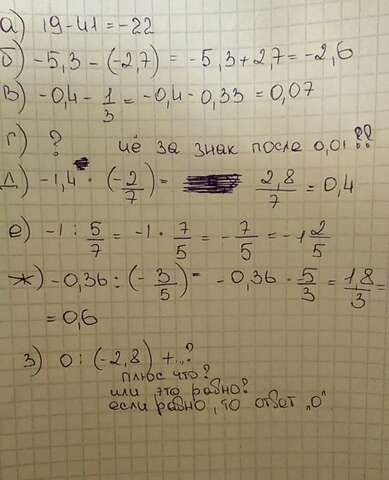 а) 19 - 41 = -22
б) -5,3 - (-2,7) = -5,3 + 2,7 = -2,6
в) -0,4 - 1/3 = -0,4 - 0,33 = 0,07
г) ? чё за знак после 0,01 ⁇
д) -1,4 · (-2/7) = 2,8/7 = 0,4
е) -1 : 5/7 = -1 · 7/5 = -7/5 = -1 2/5
ж) -0,36 : (-3/5) = -0,36 · 5/3 = 1,8/3 =
= 0,6
з) 0 : (-2,8) + ...?
плюс что?
или это равно?
если равно, то ответ „0".